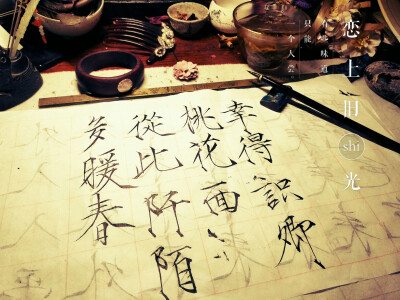 恋上旧shi光
味道
只能
一个人
幸得識卿
桃花面
從此阡陌
多暖春